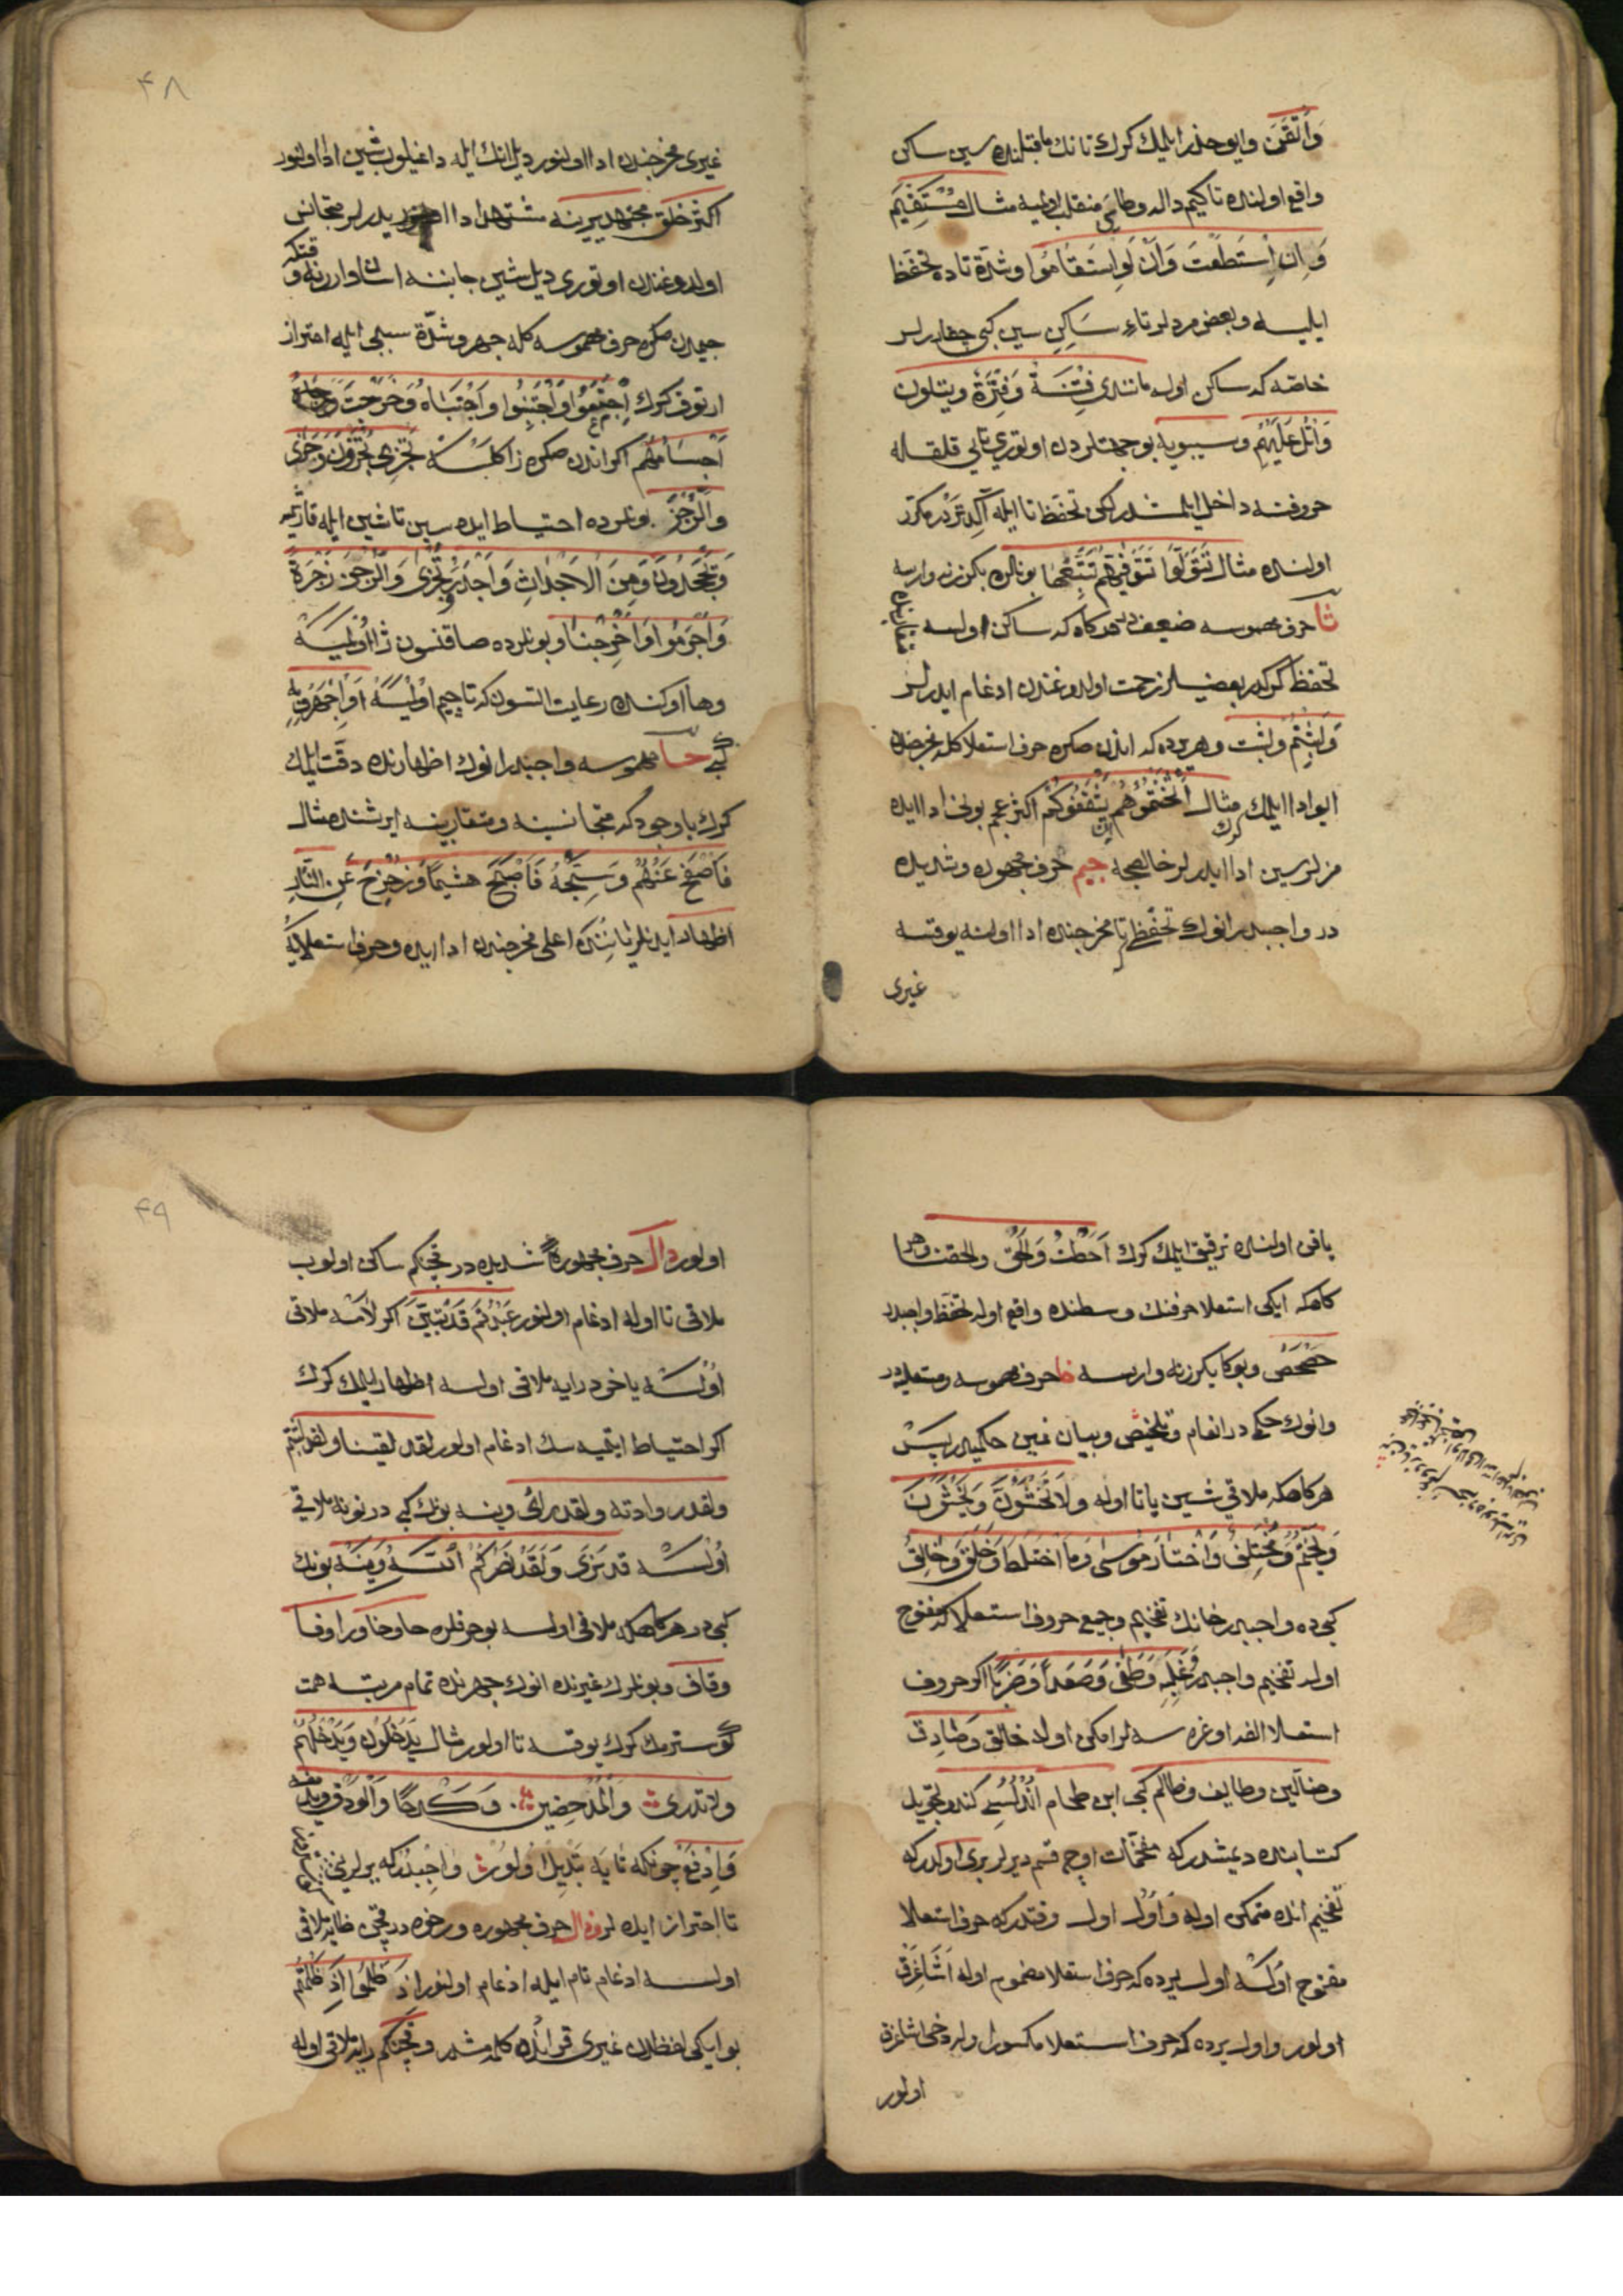 وَأَتْقَنَ وایو حذر ایلمك كرك تانك ماقبلنده سین ساكن
واقع اولنده تاكیم داله وطایه منقلب اولمیه مثال مُسْتَقِيمَ
وَاِنِ اسْتَطَعْتَ وَاَنْ لَوِ اسْتَقَامُوا وشدة تاده تحفظ
ایلیه وبعض مردلر تاءِ ساكنِ سین كبی چقارلر
خاصه كه ساكن اوله مانندی فِتْنَةً وَفِتْرَةً ویتلون
وَاتْلُ عَلَيْهِمْ وسیبویه بو جهتلردن اوتوری تایی قلقله
حروفنه داخل ایلمشدر لكن تحفظ تا ایله آكددر مكرر
اولنده مثال تَتَوَلَّوْا تَتَوَفَّيهُمْ تَتْبَعُهَا بونلره بكزر نه وارسه
ثا حرف مهموسه ضعیفدر هركاه كه ساكن اولسه
تحفظ كركدر بعضیلر زحمت اولدوغندن ادغام ایدرلر
وَلَبِثْتُمْ وَلَبِثْتَ وهر یرده كه اندن صكره حرف استعلا كله مخرجندن
ایو ادا ایلمك كرك مثال اَثْخَنْتُمُوهُمْ يَثْقَفُوكُمْ اكثر عجم بونی ادا ایده
مزلر سین ادا ایدرلر خالصجه جیم حرف مجهوره وشدیده
در واجبدر انوك تحفّظی تا مخرجنده ادا اولنه یوقسه
غیری
۴۸
غیری مخرجندن ادا اولنور دیل انك ایله داغیلوب شین ادا اولنور
اكثر خلق مجتهد یرینه مشتهد ادا ایدرلر متجانس
اولدوغندن اوتوری دیل شین جاننبه اسان وارر نه وقتكه
جیمدن صكره حرف مهموسه كله جهر وشدّة سببی ایله احتراز
ارتوق كرك اِجْتَمَعُوا وَاجْتَنِبُوا وَاجْتَبَاهُ وَخَرَجَتْ
اَجْسَامُهُمْ اكر اندن صكره زا كلسه تَجْزِى تُجْزَوْنَ
وَالرُّجْزَ بونلرده احتیاط ایده سین تا شین ایله قارشمیه
وَيَجْحَدُونَ وَمِنَ الْاَجْدَاثِ وَاَجْدَرُ تُجْزٰى وَالرِّجْزَ زَجْرَةٌ
وَاَجْرَمُوا وَاَخْرَجْنَا وبونلرده صاقنسون ژا اولمیه
وها اوكنده رعایت اتسون كه تا چیم اولمیه اَوِاجْهَرُوا بِهِ
كبی حا مهموسه واجبدر انوك اظهارنده دقت ایلمك
كرك با وجود كه متجانسینه ومتقاربینه ایرشنده مثال
فَاصْفَحْ عَنْهُمْ وَسَبِّحْهُ فَاَصْبَحَ هَشِيمًا وَزُحْزِحَ عَنِ النَّارِ
اظهار ایدنلر ثانینك اعلی مخرجندن ادا ایده وحرف استعلایه
یاقن اولنده ترقیق ایلمك كرك اَحَطْتُ وَالْحَقّ والحقت وهر
كاهكه ایكی استعلا حرفنك وسطنده واقع اوله تحفظ واجبدر
حَصْحَصَ وبوكا بكزر نه وارسه خا حرف مهموسه ومستعلیه در
وانوك حكمی در انغام وتلخیص وبیان غین حكمیدر پس
هركاهكه ملاقی شین یا تا اوله وَلَا تَخْشَوْنَ وَيَخْشَوْنَ
وَيَخْتِمُ وَمُخْتَلِفٌ وَاخْتَارَ مُوسٰى وَمَا اخْتَلَطَ وَخَلَقَ وَخَالِقُ
كبی ده واجبدر خانك تفخیم وجمیع حروف استعلا كه مفتوح
اولر تفخیم واجبدر وَطَغٰى وَصَعَدًا وَضَرَبَا اكر حروف
استعلا الفه اوغره سه لرامكی اولر خالق وَصَادِق
وضالّین وطایف وظالم كبی ابن طحام اَنْدُلُسِی كندو تجوید
كتابنده دیمشدر كه مفخّمات اوچ قسم دیرلر بری اولدر كه
تفخیم انده متمكن اوله وَاَوَّل اول وقتدر كه حرف استعلا
مفتوح اولسه اول یرده كه حرف استعلا مضموم اوله اشاغرق
اولور واول یرده كه حرف استعلا مكسور اولر دخی اشاغرق
اولور
۴۹
اولور دال حرف مجهوره شدیده در قچنكم ساكن اولوب
ملاقی تا اوله ادغام اولنور عَبَدْتُمْ قَدْ تَبَيَّنَ اكر لامه ملاقی
اولسه یاخود رایه ملاقی اولسه اظهار ایلمك كرك
اكر احتیاط ایتمیه سك ادغام اولور لقد لقینا ولقد لبثتم
ولقد راودته ولقد رأى وینه بونك كبی در نونه ملاقی
اولسه قد نرٰى وَلَقَدْ نَصَرَكُمْ بونك
كبی در هركاهكه ملاقی اولسه بو حرفلره حا وخا ورا وفا
وقاف وبونلرك غیرنده انوك جهرنده تمام مرتبه همت
كوسترمك كرك یوقسه تا اولور مثال يَدْخُلُونَ وَيُدْخِلُهُمْ
ولا تدری وَالْمُدْحَضِينَ وَكَدْحًا وَالْوَدْقَ
وَادْفَعْ چونكه تایه تبدیل اولور واجبدر كه یرلرینی
تا احتراز ایده لر ذال حرف مجهوره ورخوه در قچن ظایه ملاقی
اولسه ادغام تام ایله ادغام اولنور اِذْ ظَلَمُوا اِذْ ظَلَمْتُمْ
بو ایكی لفظدن غیری قرانده كلمه مشدر وقچنكم رایه ملاقی اوله